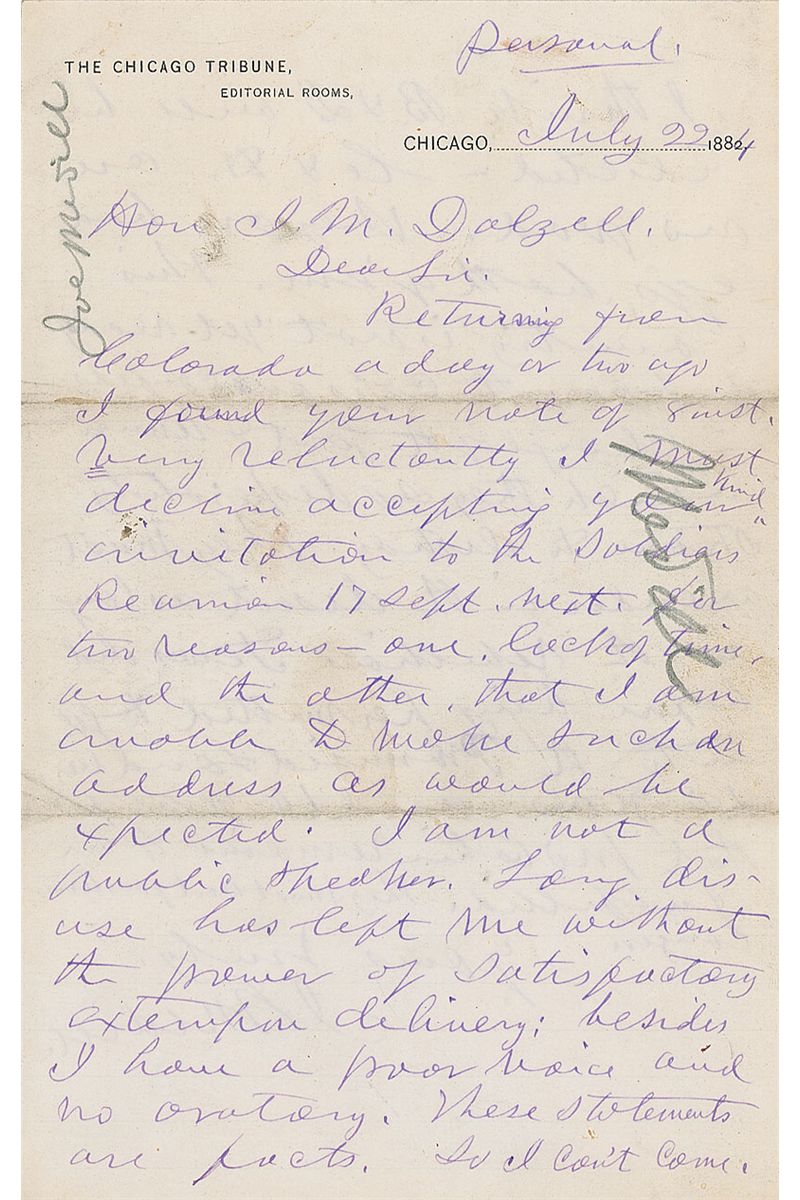 Personal.
THE CHICAGO TRIBUNE,
EDITORIAL ROOMS,
CHICAGO, July 22 1884
Joe Medill
Hon J. M. Dalzell.
Dear Sir.
Returning from
Colorado a day or two ago
I found your note of 8 inst.
Very reluctantly I must
decline accepting your kind
invitation to the Soldiers
Reunion 17 Sept. next. for
two reasons — one, lack of time,
and the other, that I am
unable to make such an
address as would be
expected. I am not a
public speaker. Long dis-
use has left me without
the power of satisfactory
extempore delivery; besides
I have a poor voice and
no oratory. These statements
are facts. So I can't come.
Medill